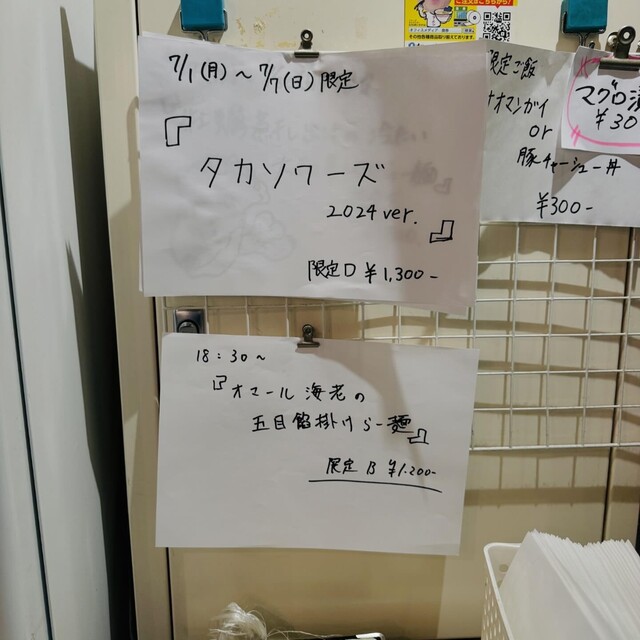 7/1(月)～7/7(日)限定
『
タカソワーズ
2024 ver.
』
限定D ¥1,300-
18:30～
『オマール海老の
五目餡掛けらー麺』
限定 B ¥1.200-
限定ご飯
オマンガイ
or
豚チャーシュー丼
¥300-
マグロ
¥30